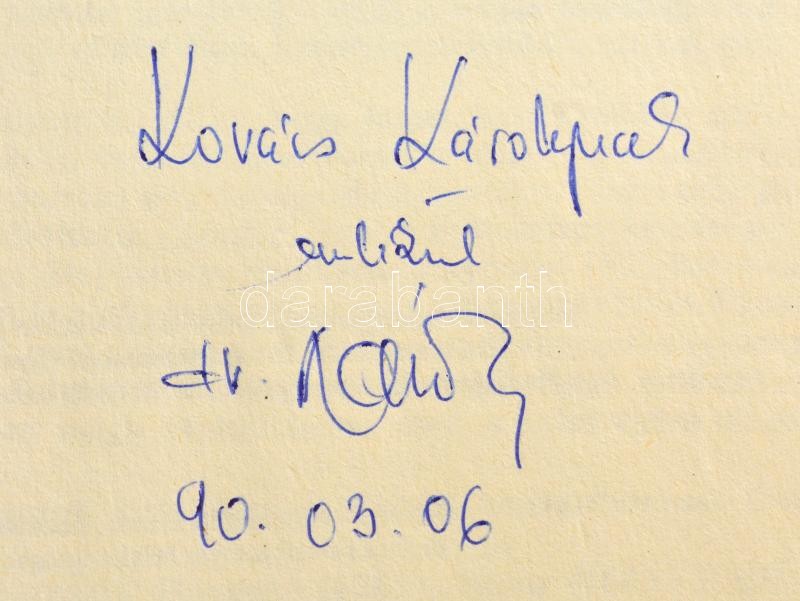 Kovács Károlynak
emlékül
darabanth
dr.
90. 03. 06